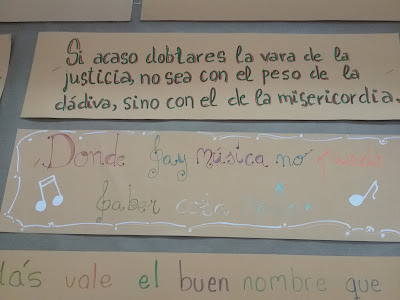 Si acaso doblares la vara de la
justicia, no sea con el peso de la
dádiva, sino con el de la misericordia.
Donde hay música no puede
haber cosa
más vale el buen nombre que